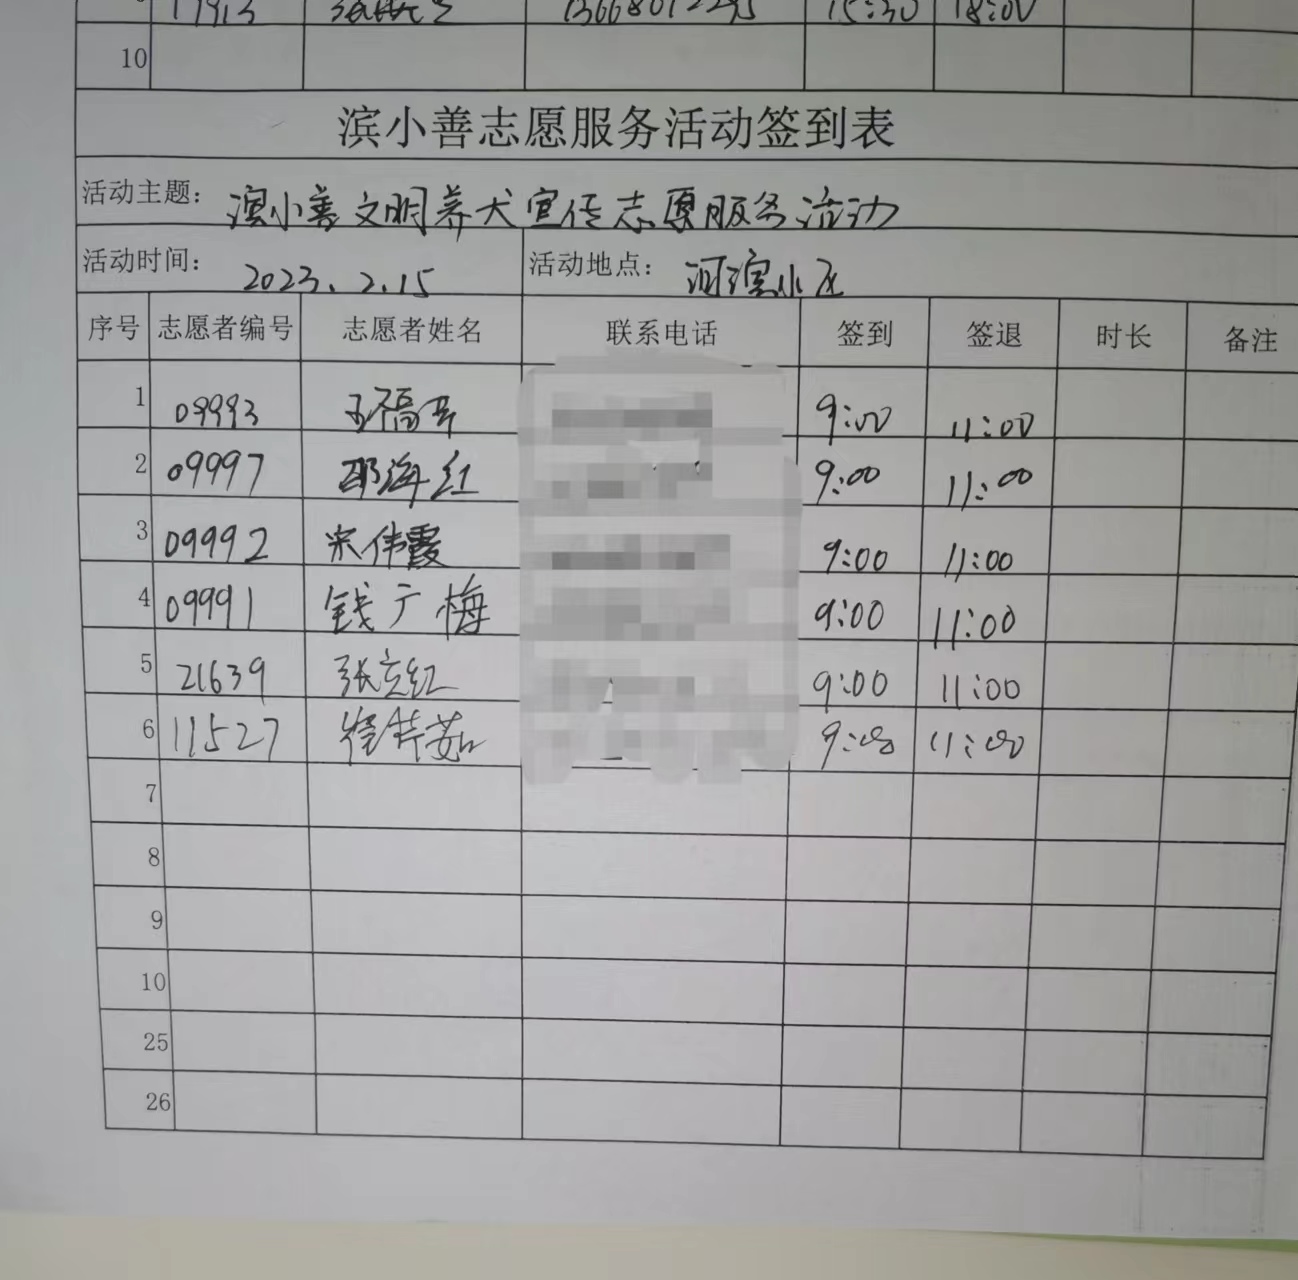 10
滨小善志愿服务活动签到表
活动主题: 滨小善文明养犬宣传志愿服务活动
活动时间: 2023.2.15 活动地点: 河滨小区
序号 志愿者编号 志愿者姓名 联系电话 签到 签退 时长 备注
1 09993 9:00 11:00
2 09997 邵海红 9:00 11:00
3 09992 宋伟霞 9:00 11:00
4 09991 钱广梅 9:00 11:00
5 21639 张立红 9:00 11:00
6 11527 9:00 11:00
7
8
9
10
25
26